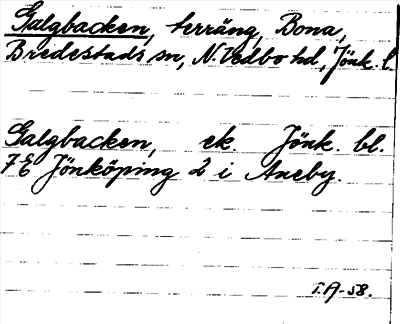 Galgbacken, terräng, Bona,
Bredestads sn, N. Vedbo hd, Jönk. l.
Galgbacken, ek. Jönk. bl.
7 E Jönköping 2 i Aneby.
T.A-58.